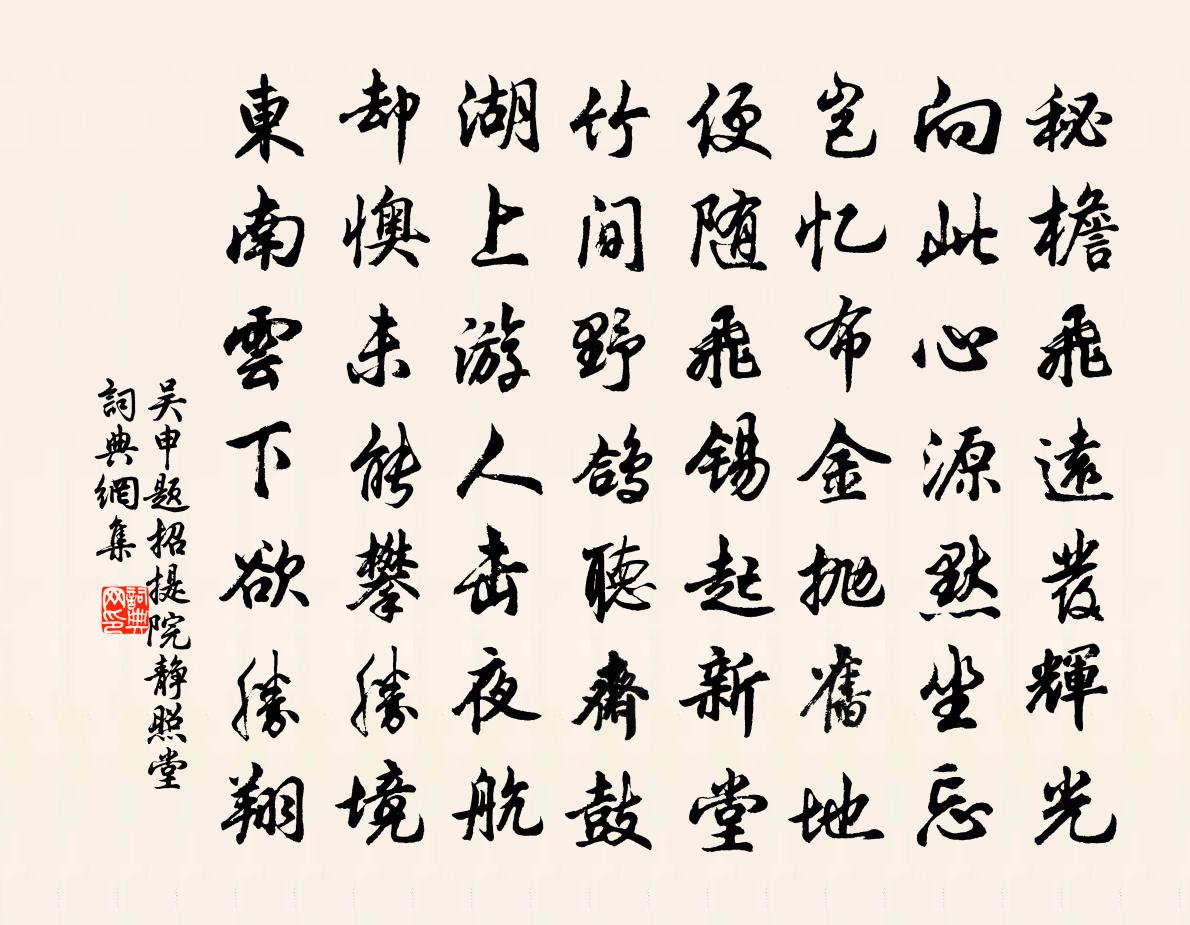 秘檐飛遠發輝光
向此心源默坐忘
岂忆布金抛舊地
便随飛锡起新堂
竹间野鸽聽齋鼓
湖上游人击夜航
却懊未能攀勝境
東南雲下欲勝翔
吴申题招提院静照堂
詞典網集
詞典网印